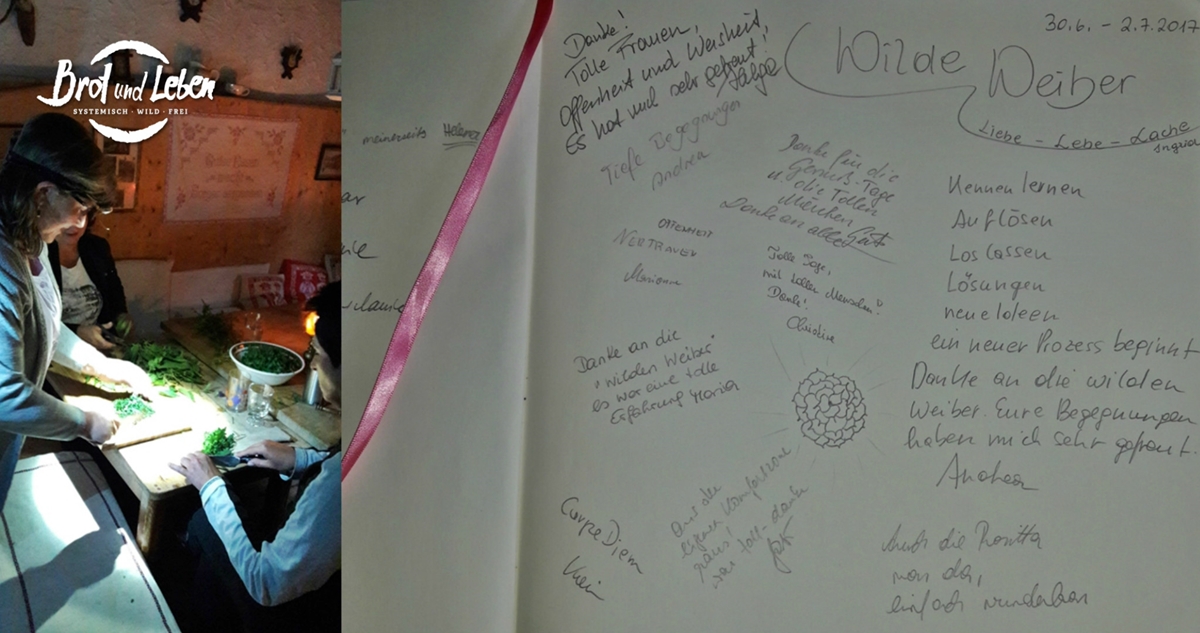 Brot und Leben
SYSTEMISCH - WILD - FREI
meinerseits Helene
30.6. - 2.7.2017
Wilde Weiber
Liebe - Lebe - Lache
Ingrid
Danke!
Tolle Frauen,
Offenheit und Weisheit,
Es hat mich sehr gefreut!
Helga
Tiefe Begegnungen
Andrea
Danke für die
Genuß-Tage
u. die tollen
Märchen
Danke an alle
OFFENHEIT
VERTRAUEN
Mariann
Tolle Tage,
mit tollen Menschen!
Danke!
Christine
Danke an die
"wilden Weiber"
es war eine tolle
Erfahrung Maria
Kennen lernen
Auflösen
Loslassen
Lösungen
neue Ideen
ein neuer Prozess beginnt
Danke an die wilden
Weiber. Eure Begegnungen
haben mich sehr gefreut.
Andrea
Carpe Diem
Aus der
eigenen Komfortzone
raus!
war toll - danke
Auch die Rositta
war da,
einfach wunderbar